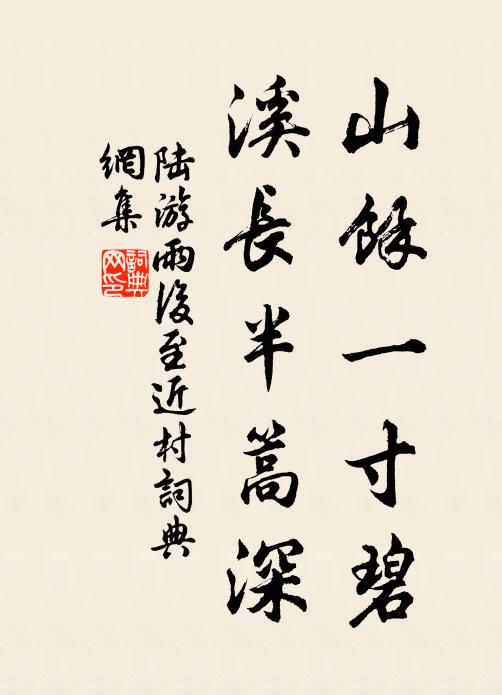 山餘一寸碧
溪長半篙深
陆游雨後至近村詞典
網集
詞典
网印